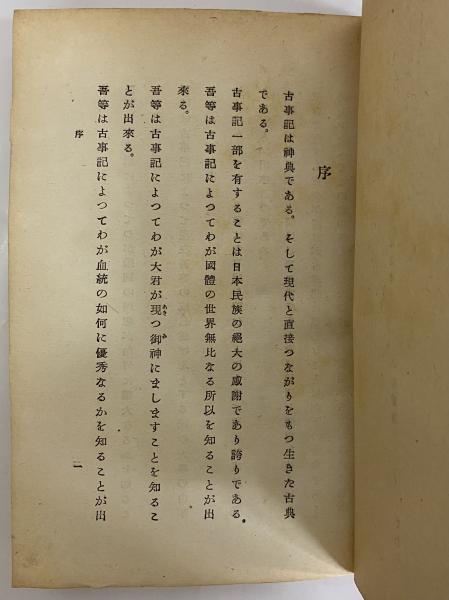 序
古事記は神典である。そして現代と直接つながりをもつ生きた古典
である。
古事記一部を有することは日本民族の絕大の感謝であり誇りである。
吾等は古事記によつてわが國體の世界無比なる所以を知ることが出
來る。
吾等は古事記によつてわが大君が現つ御神にましますことを知るこ
とが出來る。
吾等は古事記によつてわが血統の如何に優秀なるかを知ることが出
序